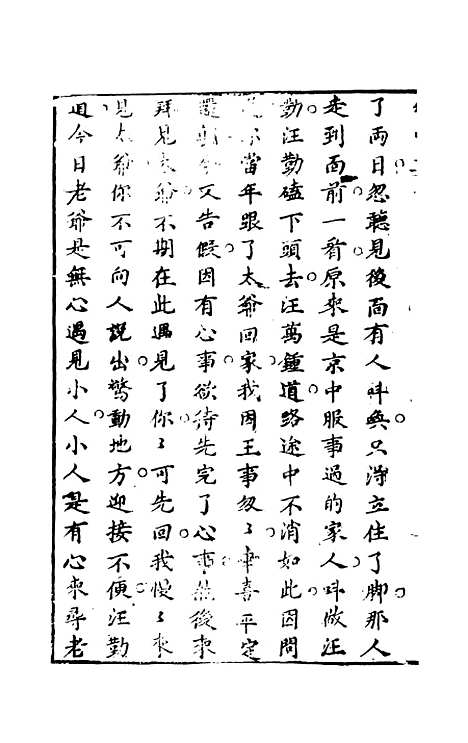 了兩日忽聽見後面有人呌喚只得立住了脚那人
走到面前一看原來是京中服事過的家人呌做汪
勤汪勤磕下頭去汪萬鍾道路途中不消如此因問
當年跟了太爺回家我因王事匆〻幸喜平定
又告假因有心事欲待先完了心事然後來
拜見太爺不期在此遇見了你〻可先回我慢〻來
見太爺你不可向人說出驚動地方迎接不便汪勤
道今日老爺是無心遇見小人小人是有心來尋老